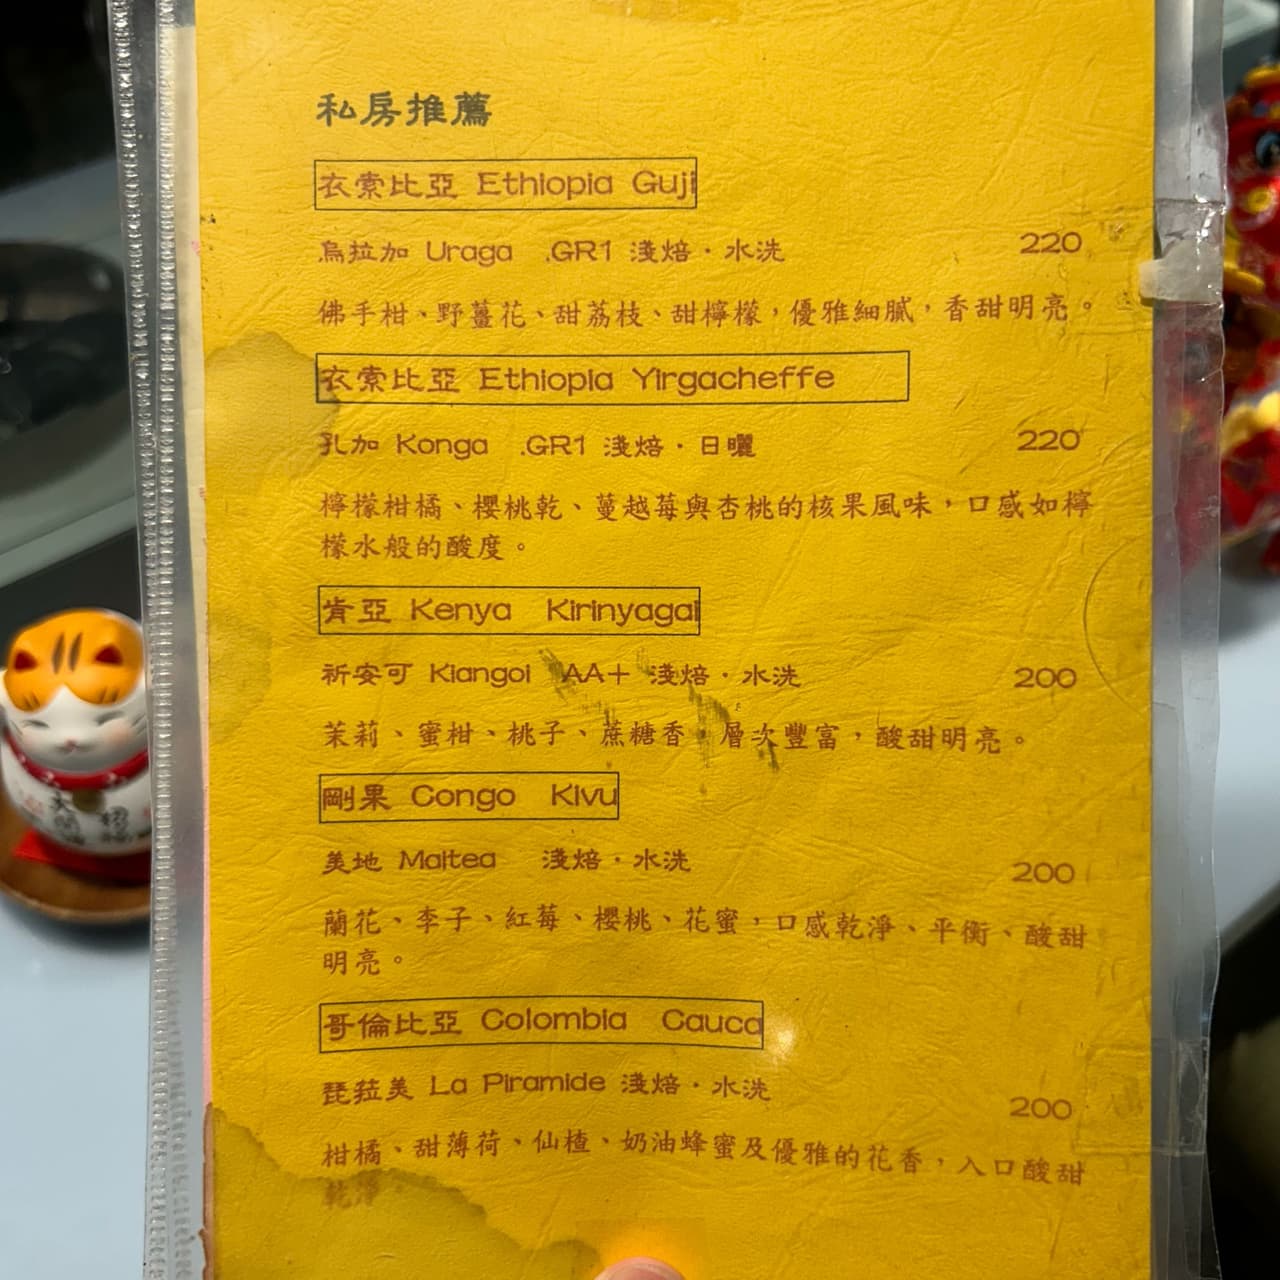 私房推薦
衣索比亞 Ethiopia Guji
烏拉加 Uraga .GR1 淺焙·水洗 220
佛手柑、野薑花、甜荔枝、甜檸檬，優雅細膩，香甜明亮。
衣索比亞 Ethiopia Yirgacheffe
孔加 Konga .GR1 淺焙·日曬 220
檸檬柑橘、櫻桃乾、蔓越莓與杏桃的核果風味，口感如檸
檬水般的酸度。
肯亞 Kenya Kirinyagai
祈安可 Kiangoi AA+ 淺焙·水洗 200
茉莉、蜜柑、桃子、蔗糖香，層次豐富，酸甜明亮。
剛果 Congo Kivu
美地 Maitea 淺焙·水洗 200
蘭花、李子、紅莓、櫻桃、花蜜，口感乾淨、平衡、酸甜
明亮。
哥倫比亞 Colombia Cauca
琵菈美 La Piramide 淺焙·水洗 200
柑橘、甜薄荷、仙楂、奶油蜂蜜及優雅的花香，入口酸甜
乾淨。